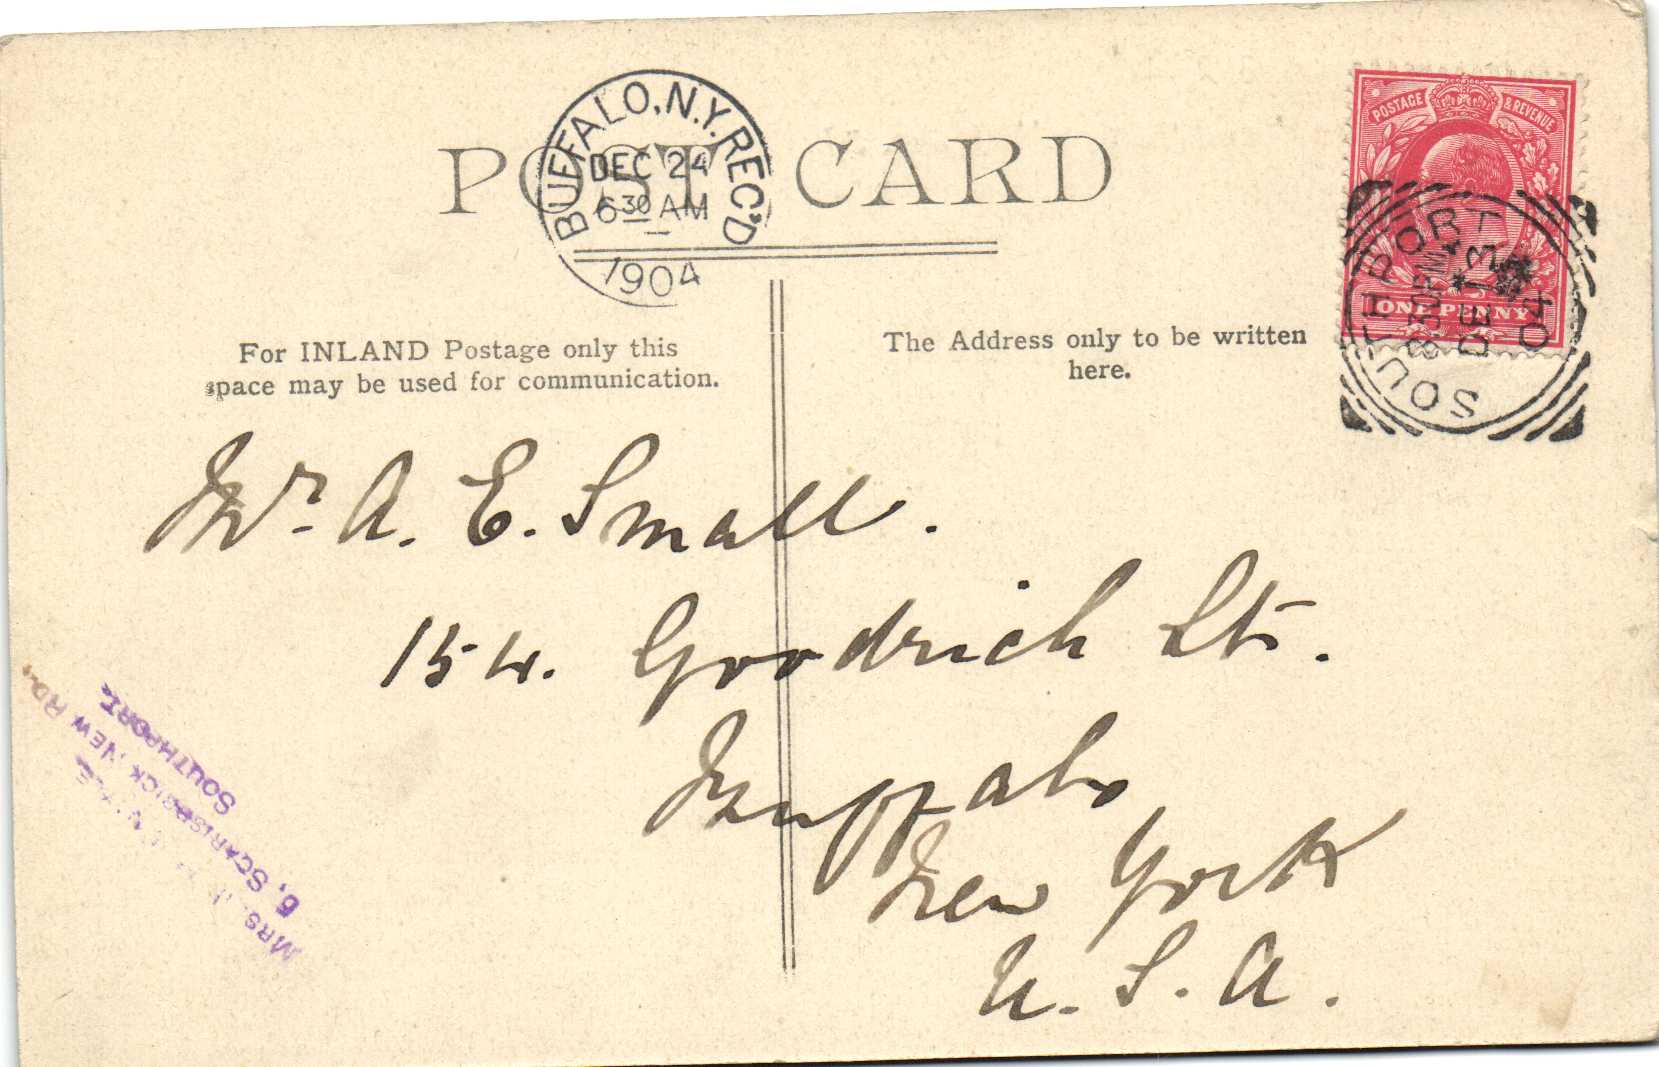 POST CARD
BUFFALO, N.Y. REC'D
DEC 24
6 30 AM
1904
POSTAGE & REVENUE
ONE PENNY
SOUTHPORT
8.30 PM
DE 13
04
For INLAND Postage only this
space may be used for communication.
The Address only to be written
here.
Mr. A. E. Small.
154. Goodrich St.
Buffalo
New York
U. S. A.
MRS.
6, SCARISBRICK NEW RD.,
SOUTHPORT.